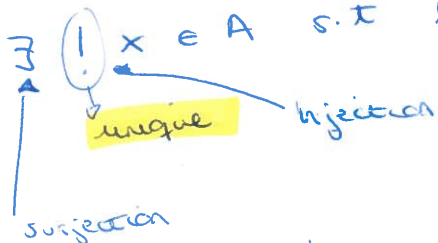 ∃ ! x ∈ A s.t
unique
Injection
surjection